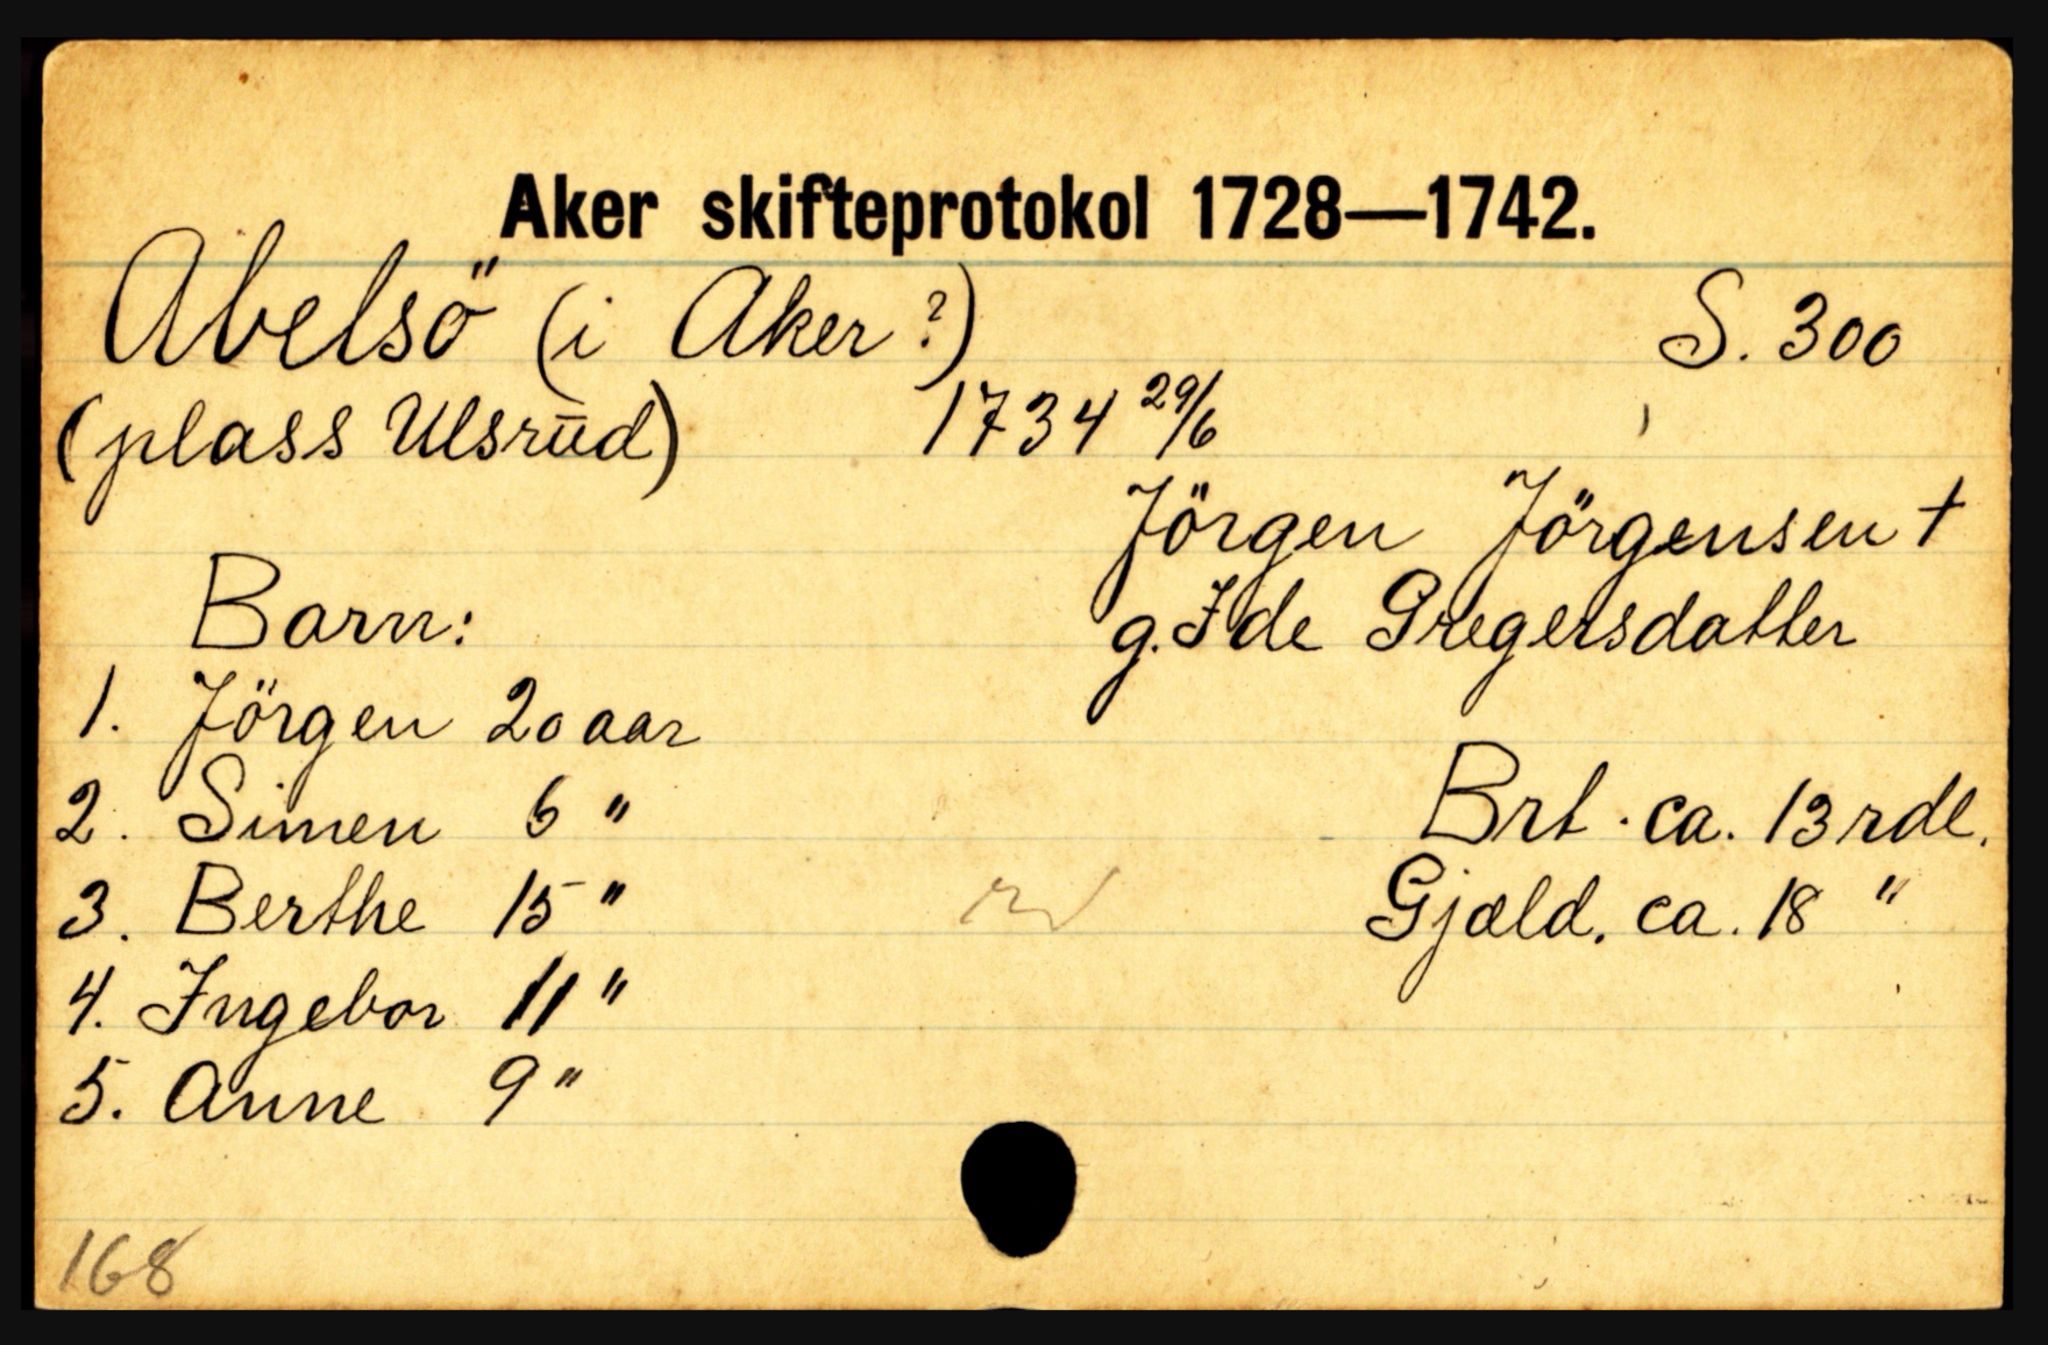 Aker skifteprotokol 1728—1742.
Abelsö (i Aker?) S. 300
(plass Ulsrūd) 1734 29/6
Jörgen Jörgensen †
Barn: g. Ide Gregersdatter
1. Jörgen 20 aar
2. Simen 6 " Brt. ca. 13 rdl.
3. Berthe 15 " Gjæld. ca. 18 "
4. Ingebor 11 "
5. Anne 9 "
168